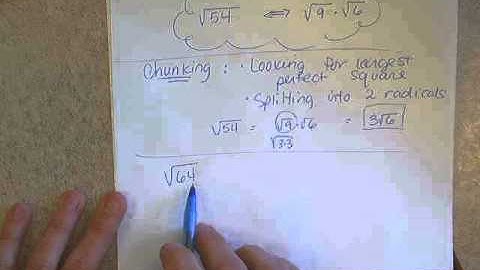 √54 ⇔ √9 · √6
Chunking : · Looking for largest
perfect square
· Splitting into 2 radicals
√54 = √9 · √6 = 3√6
√3·3
√64